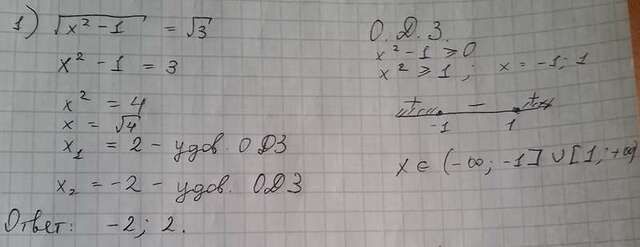 1) √x² - 1 = √3
x² - 1 = 3
x² = 4
x = √4
x₁ = 2 - удов. ОДЗ
x₂ = -2 - удов. ОДЗ
Ответ: -2; 2.
О.Д.З.
x² - 1 ≥ 0
x² ≥ 1; x = -1; 1
+ - +
-1 1
x ∈ (-∞; -1] ∪ [1; +∞)